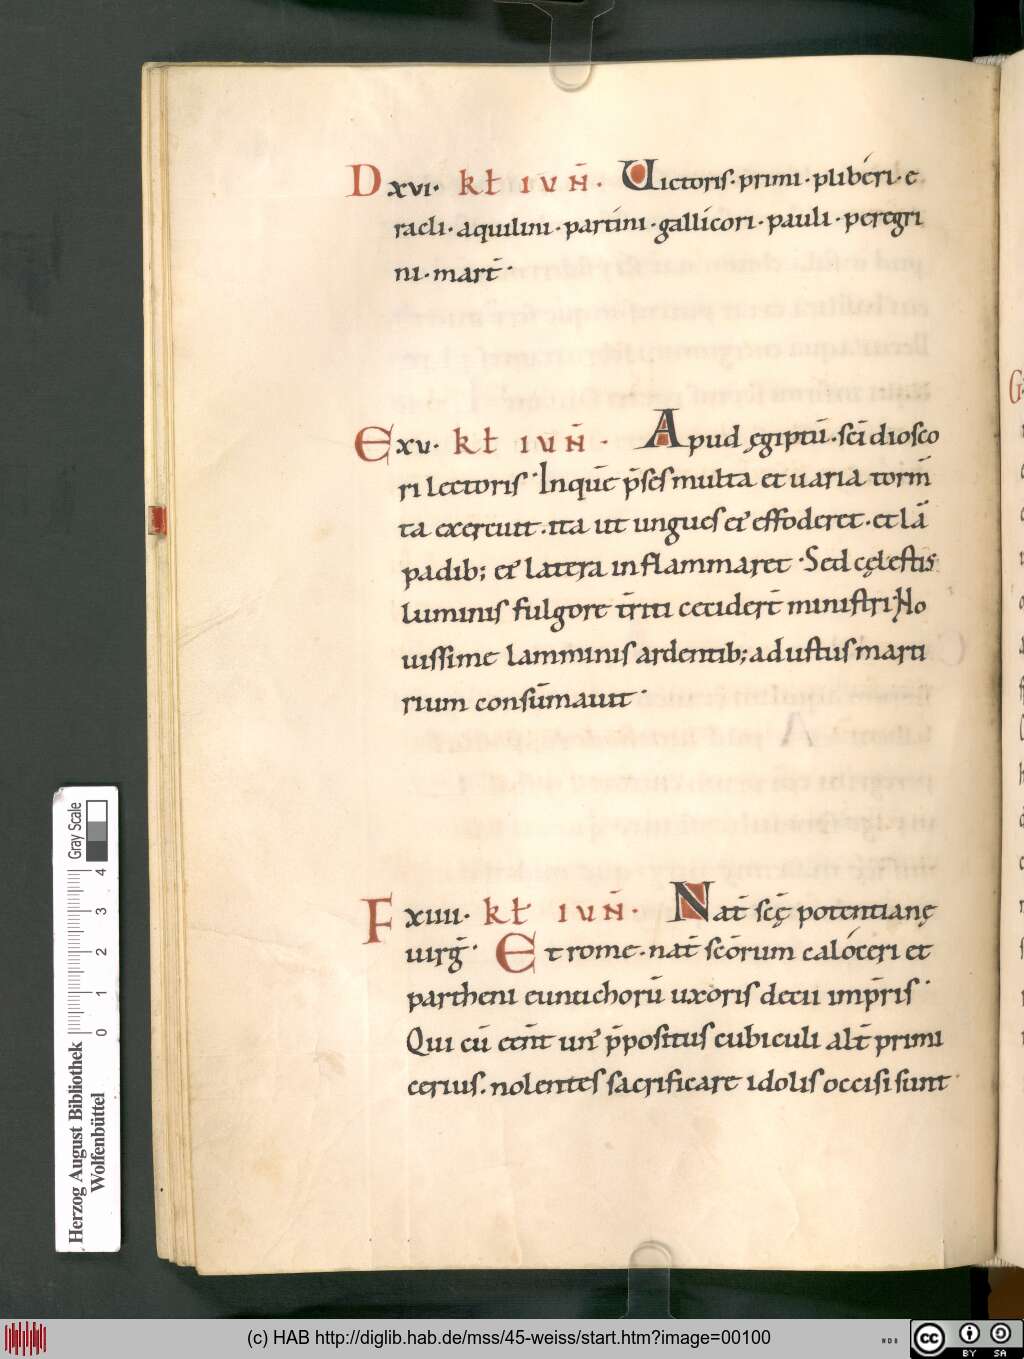 D xvi· kł iun̄· Uictoris· primi· pliberi· e
racli· aquilini· partini· gallicori· pauli· peregri
ni· mart̄·
E xv· kł iun̄· Apud ęgiptū· sc̄i diosco
ri lectoris· Inquē p̄ses multa et uaria torm̄
ta exercuit. ita ut ungues ei' effoderet· et lā
padib; ei' latera inflammaret· Sed cęlestis
luminis fulgore t̄riti cecidert̄ ministri· No
uissime lamminis ardentib; adustus marti
rium consūmauit·
F xiiii· kł iun̄· Nat̄ sc̄ę potentianę
uirḡ· Et rome· nat̄ sc̄orum caloceri et
partheni eunuchorū uxoris decii imp̄ris·
Qui cū cēnt un' p̄positus cubiculi alt̄ primi
cerius. nolentes sacrificare idolis occisi sunt·
Gray Scale
0 1 2 3 4
Herzog August Bibliothek
Wolfenbüttel
(c) HAB http://diglib.hab.de/mss/45-weiss/start.htm?image=00100
WDB
cc BY SA